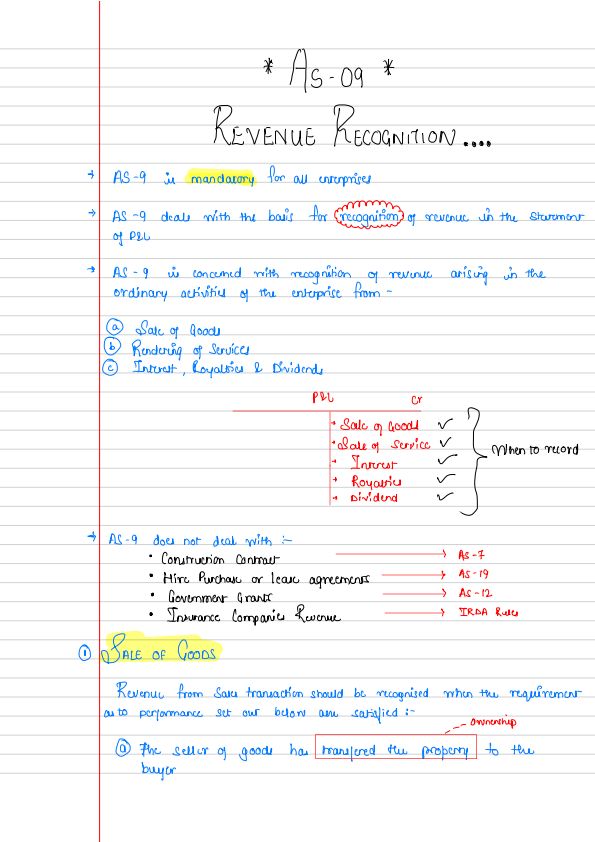 * AS-09 *
REVENUE RECOGNITION....
→ AS-9 is mandatory for all enterprises
→ AS-9 deals with the basis for recognition of revenue in the statement
of P&L
→ AS-9 is concerned with recognition of revenue arising in the
ordinary activities of the enterprise from -
ⓐ Sale of Goods
ⓑ Rendering of Services
ⓒ Interest, Royalties & Dividends
P&L Cr
→ Sale of Goods ✓
→ Sale of Service ✓
→ Interest ✓
→ Royalties ✓
→ Dividend ✓
When to record
→ AS-9 does not deal with :-
• Construction Contract → AS-7
• Hire Purchase or Lease agreements → AS-19
• Government Grants → AS-12
• Insurance Companies Revenue → IRDA Rules
① SALE OF GOODS
Revenue from Sales transaction should be recognised when the requirement
as to performance set out below are satisfied :-
ownership
ⓐ The seller of goods has transfered the property to the
buyer